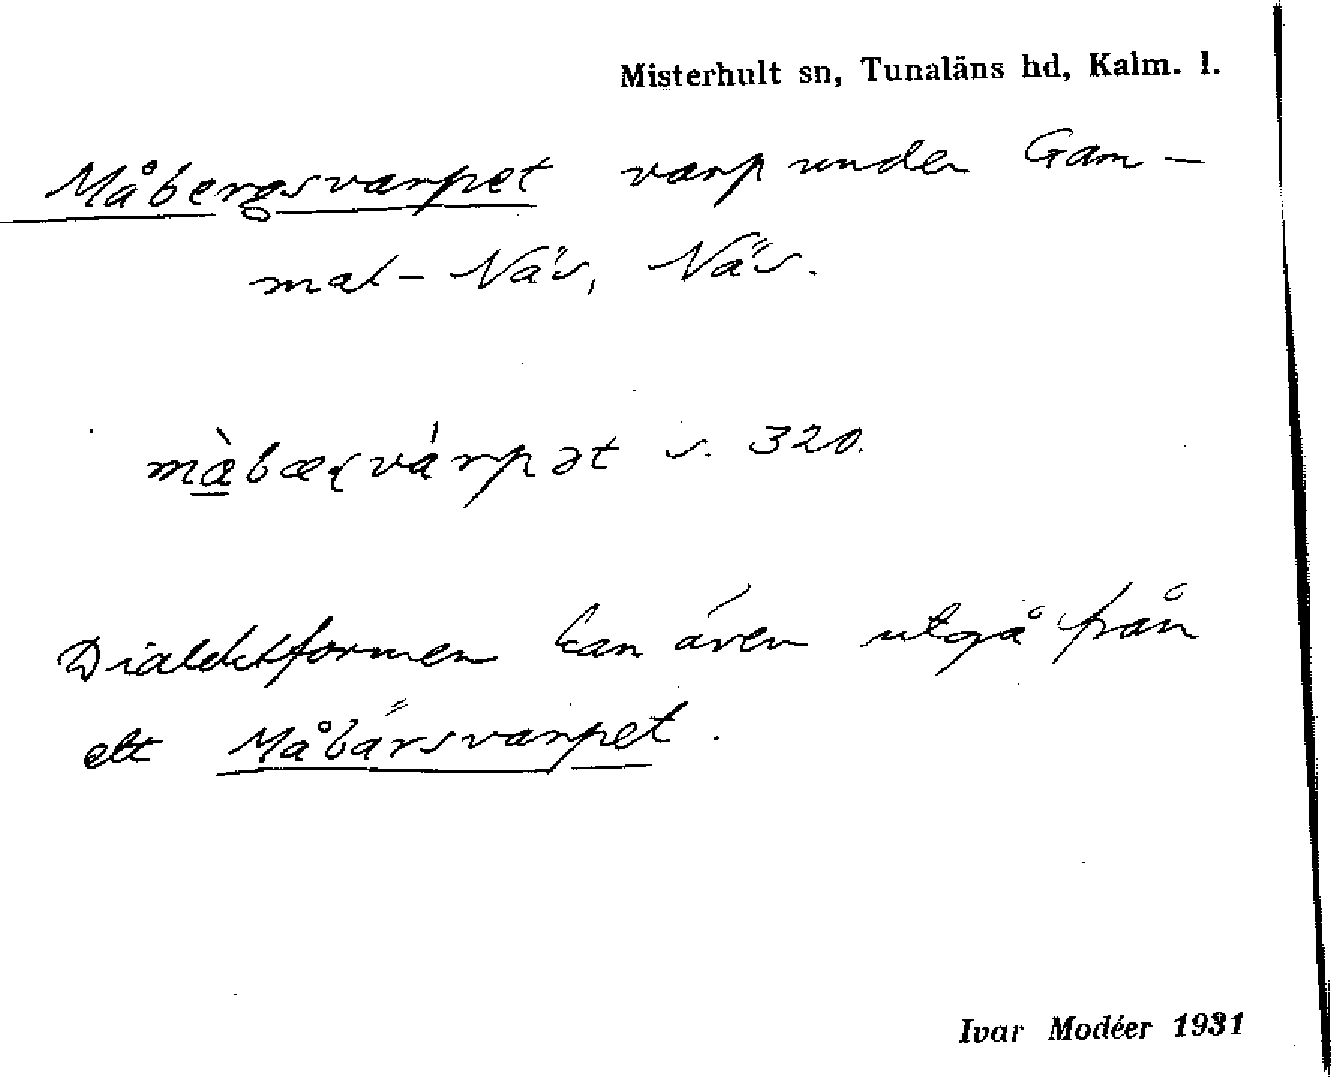 Misterhult sn, Tunaläns hd, Kalm. l.
Måbergsvarpet varp under Gam-
mal-Näs, Näs.
màbæ̨ʂvárpət s. 320.
Dialektformen kan även utgå från
ett Måbärsvarpet.
Ivar Modéer 1931